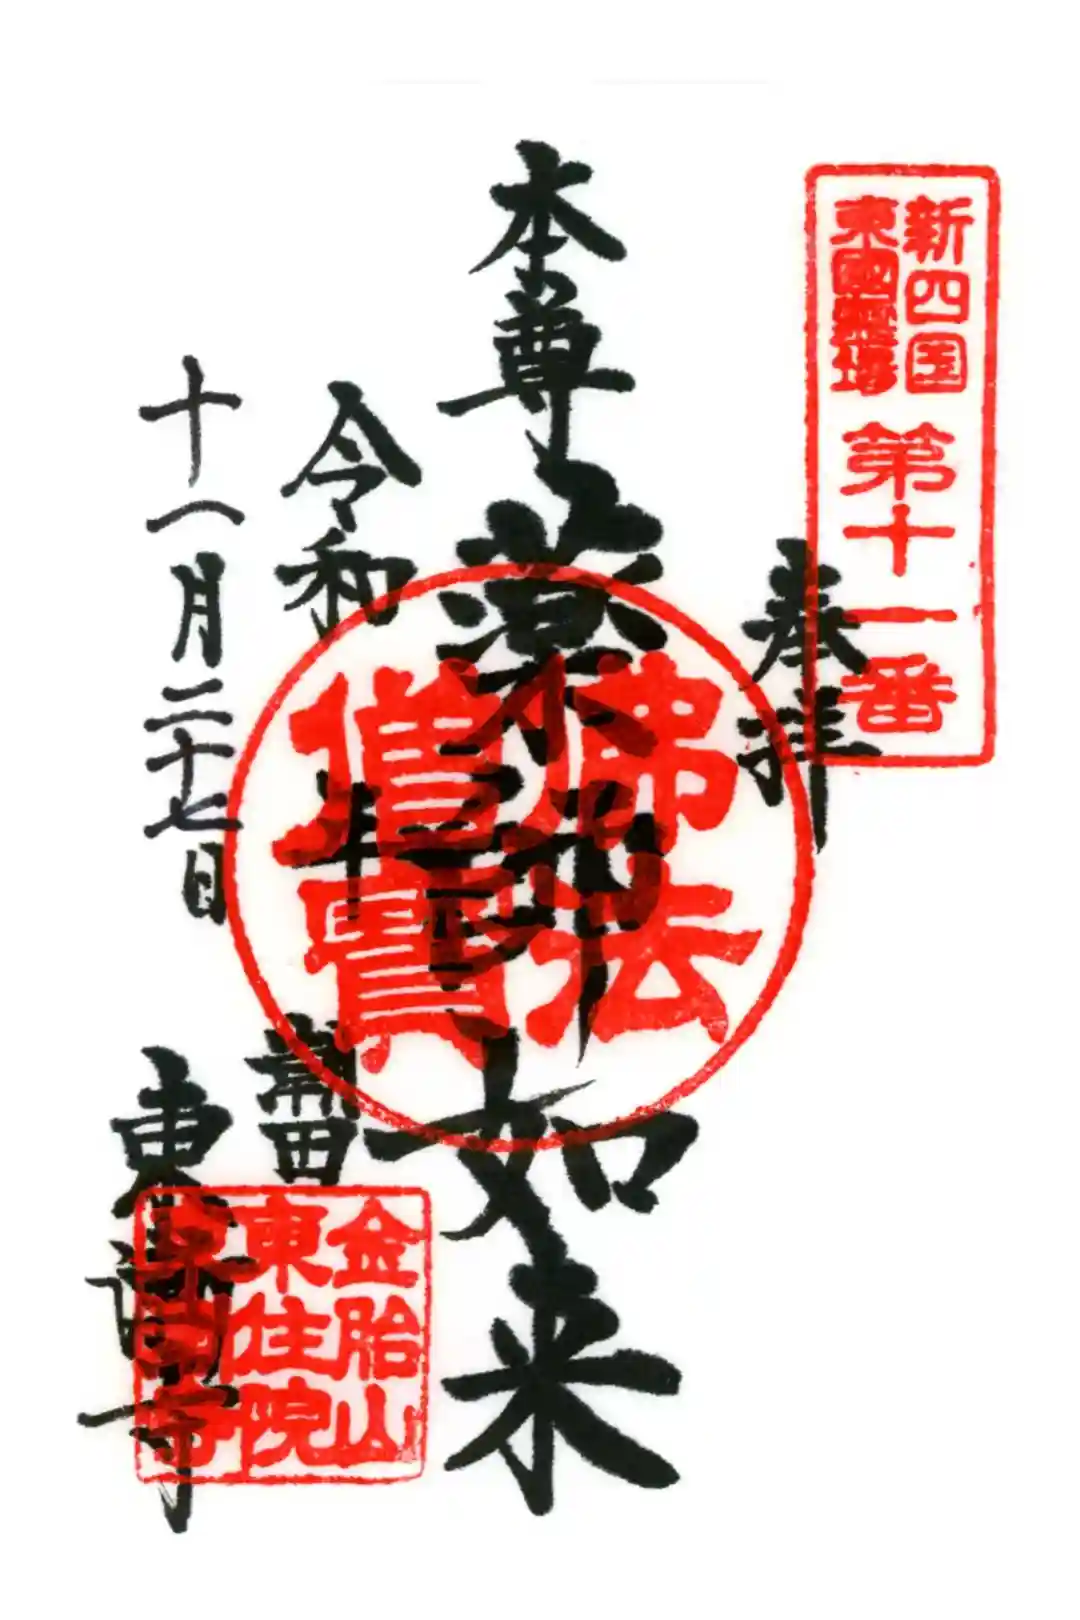 新四国
東國霊場
第十一番
奉拝
本尊薬師如来
佛法
僧寳
令和 年
十一月二十七日
金胎山
東住院